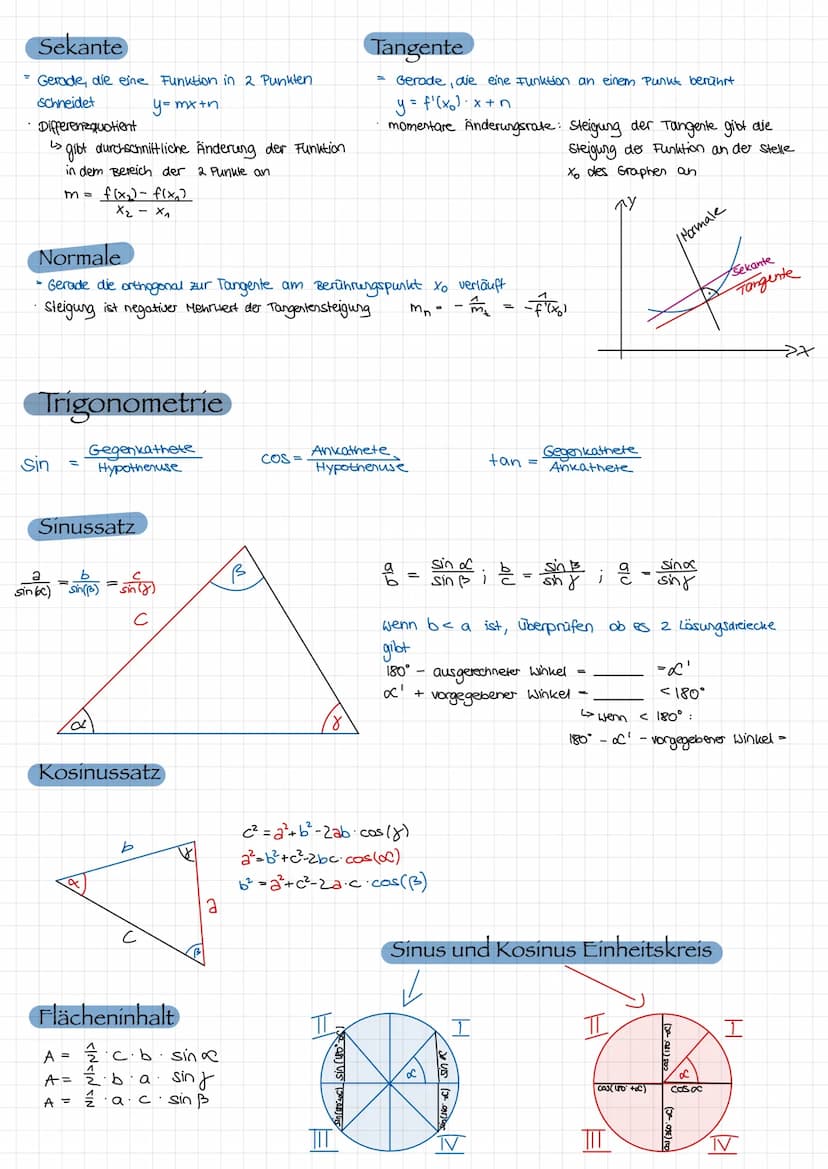 Sekante
= Gerade, die eine Funktion in 2 Punkten
schneidet y=mx+n
· Differenzquotient
↳ gibt durchschnittliche Änderung der Funktion
in dem Bereich der 2 Punkte an
m = f(x₂) - f(x₁) / x₂ - x₁
Tangente
= Gerade, die eine Funktion an einem Punkt berührt
y = f'(x₀) · x + n
· momentane Änderungsrate: Steigung der Tangente gibt die
Steigung der Funktion an der Stelle
x₀ des Graphen an
Normale
= Gerade die orthogonal zur Tangente am Berührungspunkt x₀ verläuft
· Steigung ist negativer Kehrwert der Tangentensteigung mₙ = - 1/mₜ = 1/-f'(x₀)
y
Normale
Sekante
Tangente
x
Trigonometrie
sin = Gegenkathete / Hypothenuse
cos = Ankathete / Hypothenuse
tan = Gegenkathete / Ankathete
Sinussatz
a/sin(α) = b/sin(β) = c/sin(γ)
c
β
α
γ
a/b = sin α/sin β ; b/c = sin β/sin γ ; a/c = sin α/sin γ
wenn b < a ist, überprüfen ob es 2 Lösungsdreiecke
gibt
180° - ausgerechneter Winkel = ______ = α'
α' + vorgegebener Winkel = ______ < 180°
↳ wenn < 180° :
180° - α' - vorgegebener Winkel =
Kosinussatz
b
γ
α
a
c
β
c² = a² + b² - 2ab · cos(γ)
a² = b² + c² - 2bc · cos(α)
b² = a² + c² - 2a · c · cos(β)
Sinus und Kosinus Einheitskreis
Flächeninhalt
A = 1/2 · c · b · sin α
A = 1/2 · b · a · sin γ
A = 1/2 · a · c · sin β
II
I
sin(180°-α)
α
sin α
III
IV
II
I
α
cos(180°+α)
cos α
III
IV